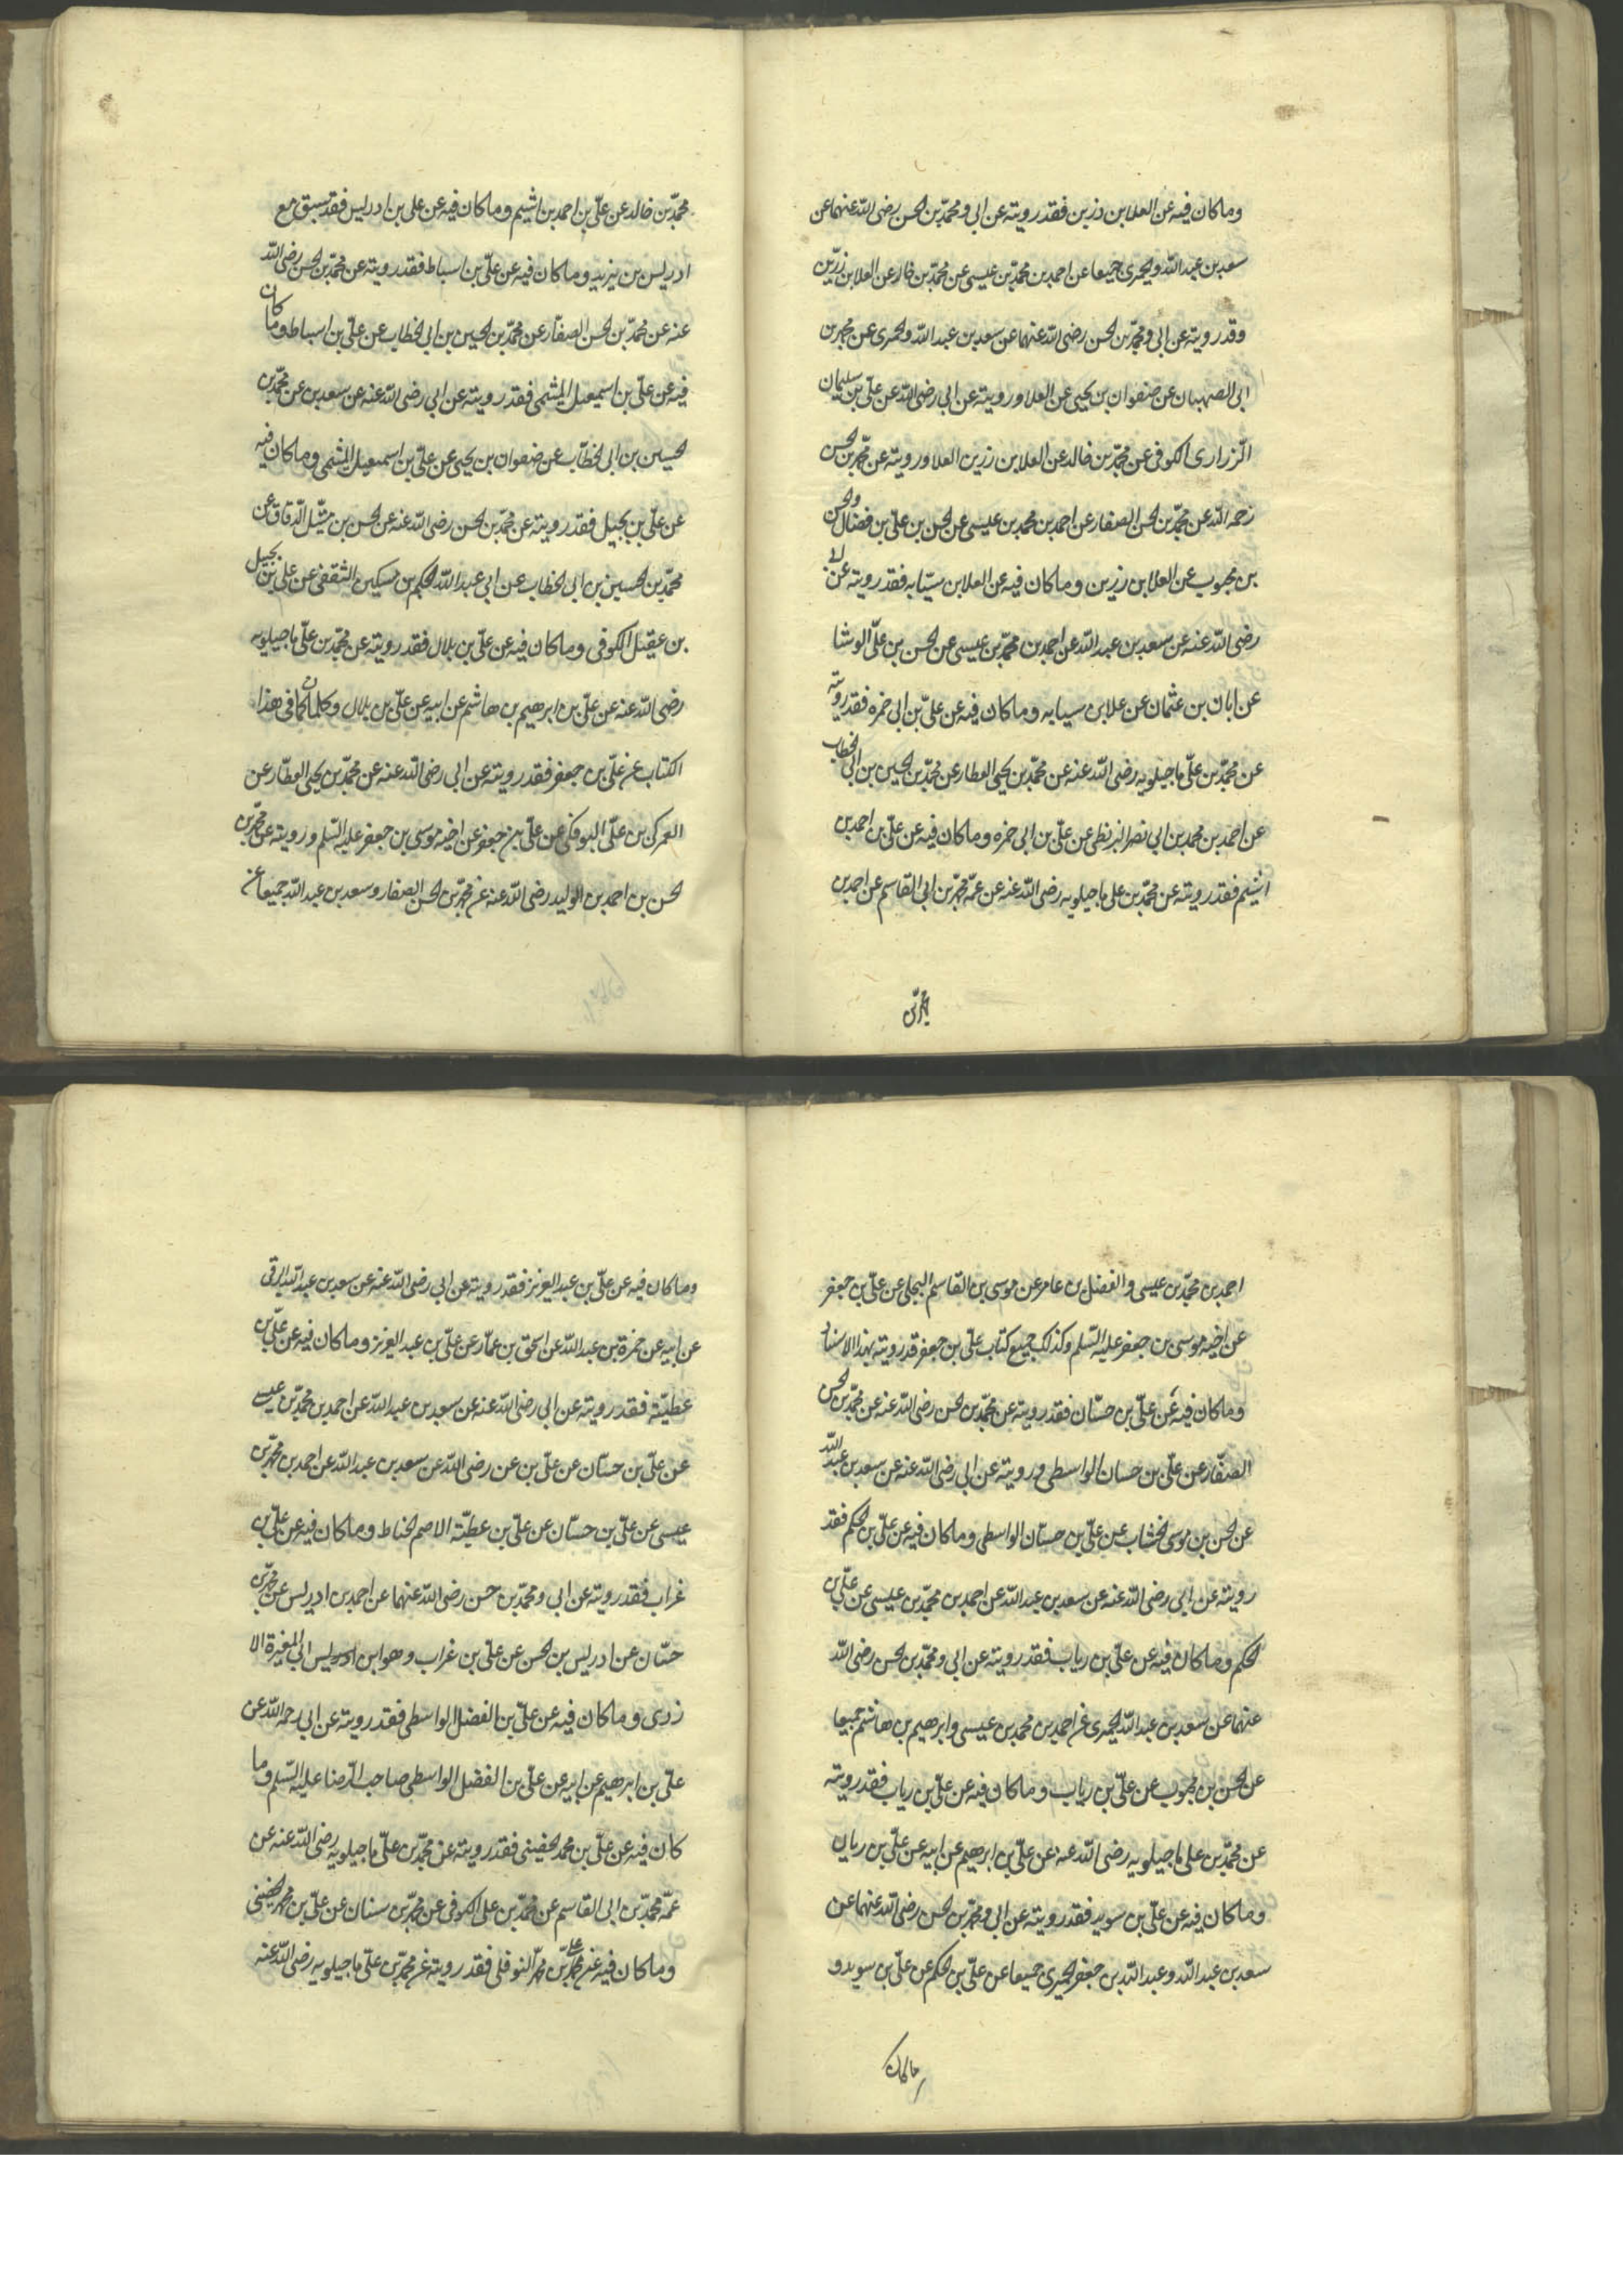 وما كان فيه عن العلا بن رزين فقد رويته عن ابى ومحمّد بن الحسن رضى الله عنهما عن
سعد بن عبد الله والحميرى جميعا عن احمد بن محمّد بن عيسى عن محمّد بن خالد عن العلا بن رزين
وقد رويته عن ابى ومحمّد بن الحسن رضى الله عنهما عن سعد بن عبد الله والحميرى عن محمد بن
ابى الصهبان عن صفوان بن يحيى عن العلا ورويته عن ابى رضى الله عن علىّ بن سليمان
الزرارى الكوفى عن محمّد بن خالد عن العلا بن رزين العلا ورويته عن محمّد بن الحسن
رحمه الله عن محمّد بن الحسن الصفار عن احمد بن محمد بن عيسى عن الحسن بن علىّ بن فضال والحسن
بن محبوب عن العلا بن رزين وما كان فيه عن العلا بن سيّابه فقد رويته عن ابى
رضى الله عنه عن سعد بن عبد الله عن احمد بن محمّد بن عيسى عن الحسن بن علىّ الوشا
عن ابان بن عثمان عن علا بن سيابه وما كان فيه عن علىّ بن ابى حمزه فقد رويته
عن محمّد بن علىّ ماجيلويه رضى الله عنه عن محمّد بن يحيى العطار عن محمّد بن الحسين بن ابى الخطاب
عن احمد بن محمد بن ابى نصر البزنطى عن علىّ بن ابى حمزه وما كان فيه عن علىّ بن احمد بن
اشيم فقد رويته عن محمّد بن على ماجيلويه رضى الله عنه عن عمّه محمّد بن ابى القاسم عن احمد بن
محمّد بن
محمّد بن خالد عن علىّ بن احمد بن اشيم وما كان فيه عن على بن ادريس فقد سبق مع
ادريس بن يزيد وما كان فيه عن علىّ بن اسباط فقد رويته عن محمّد بن الحسن رضى الله
عنه عن محمّد بن الحسن الصفّار عن محمّد بن الحسين بن ابى الخطاب عن علىّ بن اسباط وما كان
فيه عن علىّ بن اسمعيل الميثمى فقد رويته عن ابى رضى الله عنه عن سعد بن عن محمّد بن
الحسين بن ابى الخطّاب عن صفوان بن يحيى عن علىّ بن اسمعيل الميثمى وما كان فيه
عن علىّ بن بجيل فقد رويته عن محمّد بن الحسن رضى الله عنه عن الحسن بن متّيل الدّقاق عن
محمّد بن الحسين بن ابى الخطاب عن ابى عبد الله الحكم بن مسكين الثقفى عن على بن بجيل
بن عقيل الكوفى وما كان فيه عن علىّ بن بلال فقد رويته عن محمّد بن علىّ ماجيلويه
رضى الله عنه عن علىّ بن ابرهيم بن هاشم عن ابيه عن علىّ بن بلال وكلما كان فى هذا
الكتاب عن علىّ بن جعفر فقد رويته عن ابى رضى الله عنه عن محمّد بن يحيى العطّار عن
العمركى بن علىّ البوفكى عن علىّ بن جعفر عن اخيه موسى بن جعفر عليه السّلم ورويته عن محمّد بن
الحسن بن احمد بن الوليد رضى الله عنه عن محمّد بن الحسن الصفار وسعد بن عبد الله جميعا عن
احمد بن محمّد بن عيسى والفضل بن عامر عن موسى بن القاسم البجلى عن علىّ بن جعفر
عن اخيه موسى بن جعفر عليه السّلم وكذلك جميع كتاب علىّ بن جعفر قد رويته بهذا الاسناد
وما كان فيه عن علىّ بن حسّان فقد رويته عن محمّد بن الحسن رضى الله عنه عن محمّد بن الحسن
الصفّار عن علىّ بن حسان الواسطى ورويته عن ابى رضى الله عنه عن سعد بن عبد الله
عن الحسن بن موسى الخشاب عن علىّ بن حسّان الواسطى وما كان فيه عن علىّ بن الحكم فقد
رويته عن ابى رضى الله عنه عن سعد بن عبد الله عن احمد بن محمّد بن عيسى عن علىّ بن
الحكم وما كان فيه عن علىّ بن رياب فقد رويته عن ابى ومحمّد بن الحسن رضى الله
عنهما عن سعد بن عبد الله الحميرى عن احمد بن محمد بن عيسى وابرهيم بن هاشم جميعا
عن الحسن بن محبوب عن علىّ بن رياب وما كان فيه عن علىّ بن رياب فقد رويته
عن محمّد بن على ماجيلويه رضى الله عنه عن علىّ بن ابرهيم عن ابيه عن علىّ بن ريان
وما كان فيه عن علىّ بن سويد فقد رويته عن ابى ومحمّد بن الحسن رضى الله عنهما عن
سعد بن عبد الله وعبد الله بن جعفر الحميرى جميعا عن علىّ بن الحكم عن علىّ بن سويد و
وما كان
وما كان فيه عن علىّ بن عبد العزيز فقد رويته عن ابى رضى الله عنه عن سعد بن عبد الله البرقى
عن ابيه عن حمزة بن عبد الله عن اسحق بن عمّار عن علىّ بن عبد العزيز وما كان فيه عن علىّ بن
عطيّة فقد رويته عن ابى رضى الله عنه عن سعد بن عبد الله عن احمد بن محمّد بن عيسى
عن علىّ بن حسّان عن علىّ بن عن رضى الله عن سعد بن عبد الله عن احمد بن محمّد بن
عيسى عن على بن حسّان عن علىّ بن عطيّة الاصم الحناط وما كان فيه عن علىّ بن
غراب فقد رويته عن ابى ومحمّد بن حسن رضى الله عنهما عن احمد بن ادريس عن محمّد بن
حسّان عن ادريس بن الحسن عن علىّ بن غراب وهو ابن ادريس ابى المغيرة الا
زدى وما كان فيه عن علىّ بن الفضل الواسطى فقد رويته عن ابى رحمه الله عن
علىّ بن ابرهيم عن ابيه عن علىّ بن الفضل الواسطى صاحب الرّضا عليه السّلم وما
كان فيه عن علىّ بن محمد الحضينى فقد رويته عن محمّد بن علىّ ماجيلويه رضى الله عنه عن
عمّه محمّد بن ابى القاسم عن محمّد بن على الكوفى عن محمّد بن سنان عن علىّ بن محمد الحضينى
وما كان فيه عن علىّ بن محمّد النوفلى فقد رويته عن محمّد بن علىّ ماجيلويه رضى الله عنه